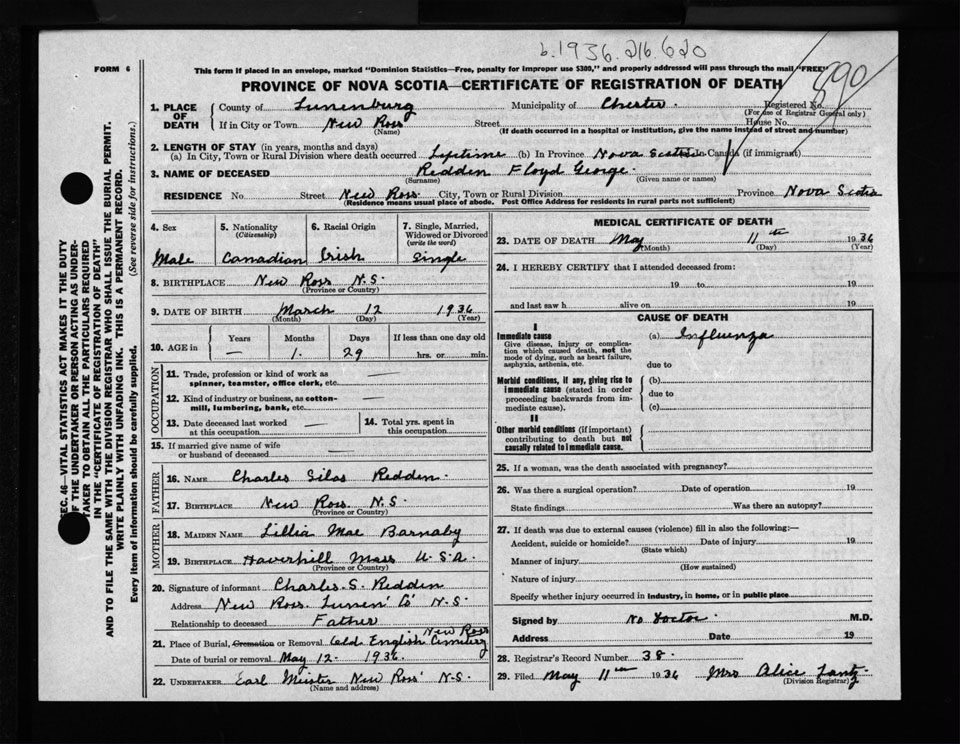 b.1936.216.620
FORM 6
This form if placed in an envelope, marked "Dominion Statistics—Free, penalty for improper use $300," and properly addressed will pass through the mail "FREE"
890
PROVINCE OF NOVA SCOTIA—CERTIFICATE OF REGISTRATION OF DEATH
1. PLACE OF DEATH
County of Lunenburg Municipality of Chester. Registered No.
(For use of Registrar General only)
If in City or Town New Ross Street House No.
(Name) (If death occurred in a hospital or institution, give the name instead of street and number)
2. LENGTH OF STAY (in years, months and days)
(a) In City, Town or Rural Division where death occurred Lifetime (b) In Province Nova Scotia In Canada (if immigrant)
3. NAME OF DECEASED Redden Floyd George.
(Surname) (Given name or names)
RESIDENCE No. Street New Ross City, Town or Rural Division Province Nova Scotia
(Residence means usual place of abode. Post Office Address for residents in rural parts not sufficient)
4. Sex Male
5. Nationality (Citizenship) Canadian
6. Racial Origin Irish
7. Single, Married, Widowed or Divorced (write the word) Single
8. BIRTHPLACE New Ross N.S.
(Province or Country)
9. DATE OF BIRTH March 12 1936
(Month) (Day) (Year)
10. AGE in Years — Months 1. Days 29 If less than one day old hrs. or min.
OCCUPATION
11. Trade, profession or kind of work as spinner, teamster, office clerk, etc. —
12. Kind of industry or business, as cotton-mill, lumbering, bank, etc. —
13. Date deceased last worked at this occupation —
14. Total yrs. spent in this occupation
15. If married give name of wife or husband of deceased —
FATHER
16. NAME Charles Silas Redden
17. BIRTHPLACE New Ross N.S
(Province or Country)
MOTHER
18. MAIDEN NAME Lillia Mae Barnaby
19. BIRTHPLACE Haverhill Mass U.S.A.
(Province or Country)
20. Signature of informant Charles.S. Redden
Address New Ross Lunen' Co' N.S.
Relationship to deceased Father
21. Place of Burial, Cremation or Removal Old English Cemetery New Ross
Date of burial or removal May 12 - 1936.
22. UNDERTAKER Earl Meister New Ross N.S.
(Name and address)
MEDICAL CERTIFICATE OF DEATH
23. DATE OF DEATH May 11th 1936
(Month) (Day) (Year)
24. I HEREBY CERTIFY that I attended deceased from:
19 to 19
and last saw h alive on 19
CAUSE OF DEATH
I
Immediate cause
Give disease, injury or complication which caused death, not the mode of dying, such as heart failure, asphyxia, asthenia, etc.
(a) Influenza
due to
Morbid conditions, if any, giving rise to immediate cause (stated in order proceeding backwards from immediate cause).
(b)
due to
(c)
II
Other morbid conditions (if important) contributing to death but not causally related to immediate cause.
25. If a woman, was the death associated with pregnancy?
26. Was there a surgical operation? Date of operation 19
State findings Was there an autopsy?
27. If death was due to external causes (violence) fill in also the following:—
Accident, suicide or homicide? Date of injury 19
(State which)
Manner of injury
(How sustained)
Nature of injury
Specify whether injury occurred in industry, in home, or in public place
Signed by No Doctor M.D.
Address Date 19
28. Registrar's Record Number 38.
29. Filed May 11th 1936 Mrs Alice Lantz
(Division Registrar)
SEC. 46—VITAL STATISTICS ACT MAKES IT THE DUTY
OF THE UNDERTAKER OR PERSON ACTING AS UNDER-
TAKER TO OBTAIN ALL THE PARTICULARS REQUIRED
IN THE "CERTIFICATE OF REGISTRATION OF DEATH"
AND TO FILE THE SAME WITH THE DIVISION REGISTRAR WHO SHALL ISSUE THE BURIAL PERMIT.
WRITE PLAINLY WITH UNFADING INK. THIS IS A PERMANENT RECORD.
Every item of information should be carefully supplied. (See reverse side for instructions.)